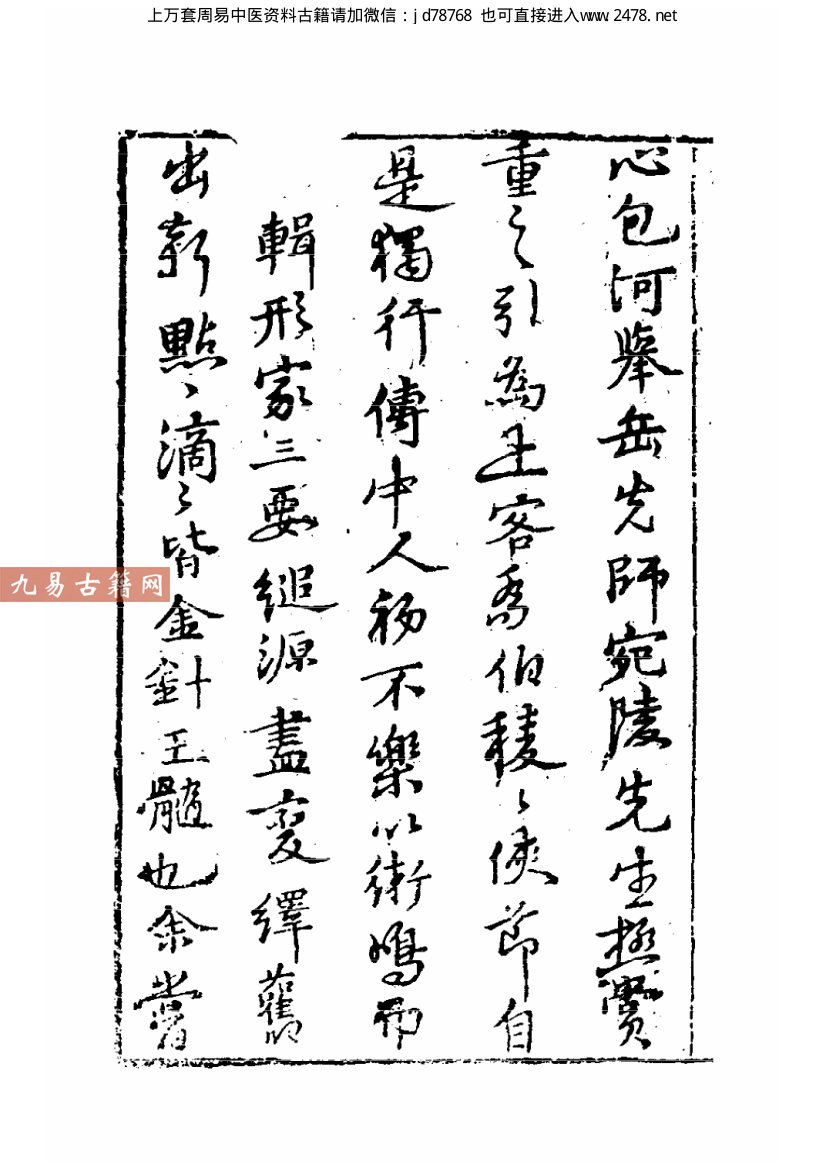 上万套周易中医资料古籍请加微信：jd78768 也可直接进入www.2478.net
心包河擧岳先師宛陵先生極賓
重之引為主客喬伯稜〻俠節自
是獨行傳中人初不樂以術鳴而
輯形家三要縋源盡変繹舊
出新點〻滴〻皆金針玉髓也余嘗
九易古籍网